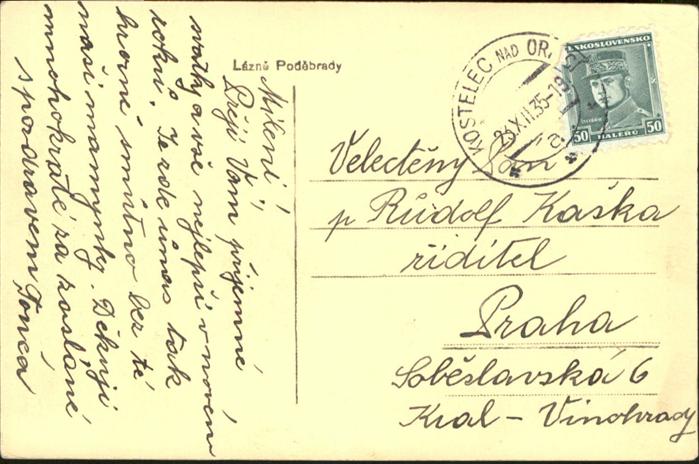 Lázně Poděbrady
Milení!
Přeji Vám příjemné
svátky a vše nejlepší v novém
roku. Je zde u nás tak
hrozně smutno bez té
naší maminky. Děkuji
mnohokráte za zaslané,
s pozdravem Tonča
KOSTELEC NAD OR
23.XII.35-19
ČESKOSLOVENSKO
50 HALÉŘŮ 50
Velectěný Pan
p Rudolf Kaška
řiditel
Praha
Soběslavská 6
Král - Vinohrady